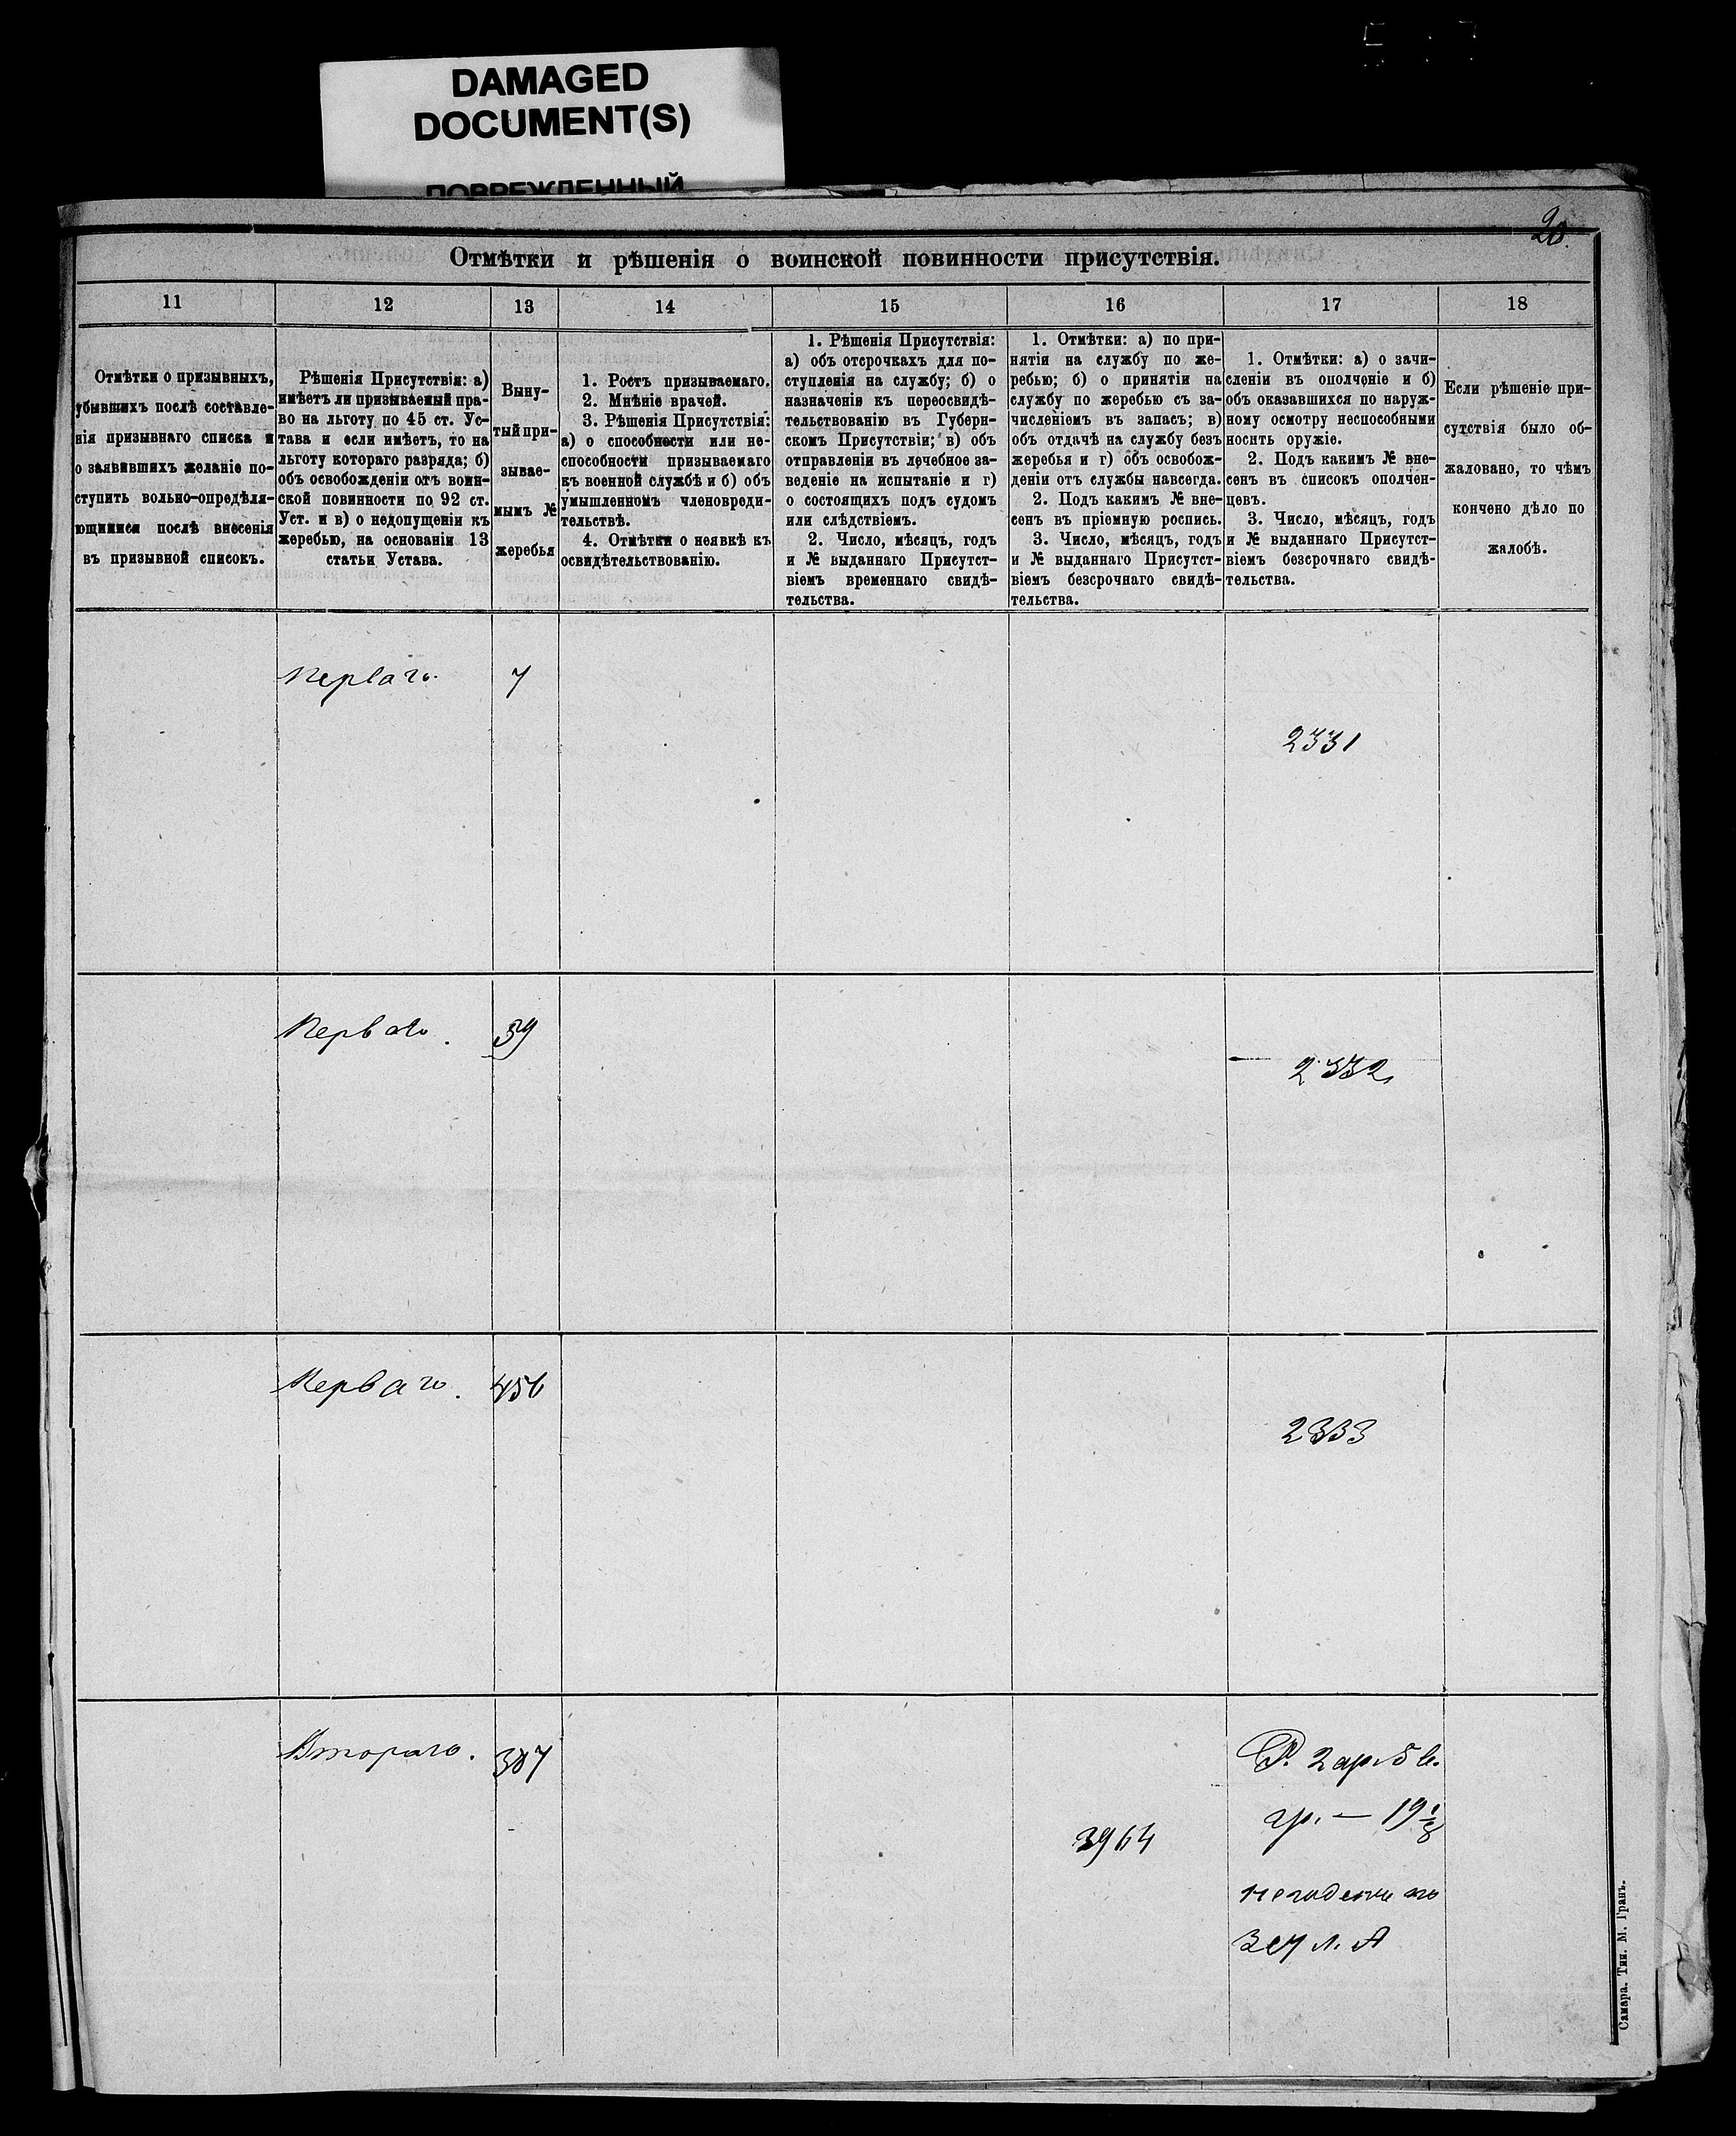 DAMAGED
DOCUMENT(S)
ПОВРЕЖДЕННЫЙ
20.
Отмѣтки и рѣшенія о воинской повинности присутствія.
11
12
13
14
15
16
17
18
Отмѣтки о призывныхъ,
убывшихъ послѣ составле-
нія призывнаго списка и
о заявившихъ желаніе по-
ступить вольно-опредѣля-
ющимися послѣ внесенія
въ призывной списокъ.
Рѣшенія Присутствія: а)
имѣетъ ли призываемый пра-
во на льготу по 45 ст. Ус-
тава и если имѣетъ, то на
льготу котораго разряда; б)
объ освобожденіи отъ воин-
ской повинности по 92 ст.
Уст. и в) о недопущеніи къ
жеребью, на основаніи 13
статьи Устава.
Выну-
тый при-
зывае-
мымъ №
жеребья
1. Ростъ призываемаго.
2. Мнѣніе врачей.
3. Рѣшенія Присутствія:
а) о способности или не-
способности призываемаго
къ военной службѣ и б) объ
умышленномъ членовреди-
тельствѣ.
4. Отмѣтки о неявкѣ къ
освидѣтельствованію.
1. Рѣшенія Присутствія:
а) объ отсрочкахъ для по-
ступленія на службу; б) о
назначенія къ переосвидѣ-
тельствованію въ Губерн-
скомъ Присутствіи; в) объ
отправленіи въ лечебное за-
веденіе на испытаніе и г)
о состоящихъ подъ судомъ
или слѣдствіемъ.
2. Число, мѣсяцъ, годъ
и № выданнаго Присутст-
віемъ временнаго свидѣ-
тельства.
1. Отмѣтки: а) по при-
нятіи на службу по же-
ребью; б) о принятіи на
службу по жеребью съ за-
численіемъ въ запасъ; в)
объ отдачѣ на службу безъ
жеребья и г) объ освобож-
деніи отъ службы навсегда.
2. Подъ какимъ № вне-
сенъ въ пріемную роспись.
3. Число, мѣсяцъ, годъ
и № выданнаго Присутст-
віемъ безсрочнаго свидѣ-
тельства.
1. Отмѣтки: а) о зачи-
сленіи въ ополченіе и б)
объ оказавшихся по наруж-
ному осмотру неспособными
носить оружіе.
2. Подъ какимъ № вне-
сенъ въ списокъ ополчен-
цевъ.
3. Число, мѣсяцъ, годъ
и № выданнаго Присутст-
віемъ безсрочнаго свидѣ-
тельства.
Если рѣшеніе при-
сутствія было об-
жаловано, то чѣмъ
кончено дѣло по
жалобѣ.
Перваго.
7
2331
Перваго.
39
2332
Перваго.
456
2333
Втораго.
387
3964
Р. 2 ар. 5 в.
гр. — 19 1/8
А
Самара. Тип. М. Гранъ.